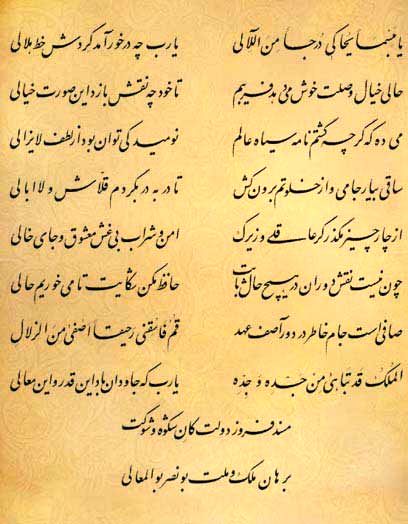 یا مبسماً یحاکی درجاً من اللآلی یارب چه درخور آمد گردش خط هلالی
حالی خیال وصلت خوش می دهد فریبم تا خود چه نقش بازد این صورت خیالی
می ده که گرچه گشتم نامه سیاه عالم نومید کی توان بود از لطف لایزالی
ساقی بیار جامی و از خلوتم برون کش تا در به در بگردم قلاش و لاابالی
از چار چیز مگذر گر عاقلی و زیرک امن و شراب بی غش معشوق و جای خالی
چون نیست نقش دوران در هیچ حال ثابت حافظ مکن شکایت تا می خوریم حالی
صافی است جام خاطر در دور آصف عهد قم فاسقنی رحیقاً اصفی من الزلال
الملک قد تباهی من جده و جده یارب که جاودان باد این قدر و این معالی
مسند فروز دولت کان شکوه و شوکت
برهان ملک و ملت بونصر بوالمعالی